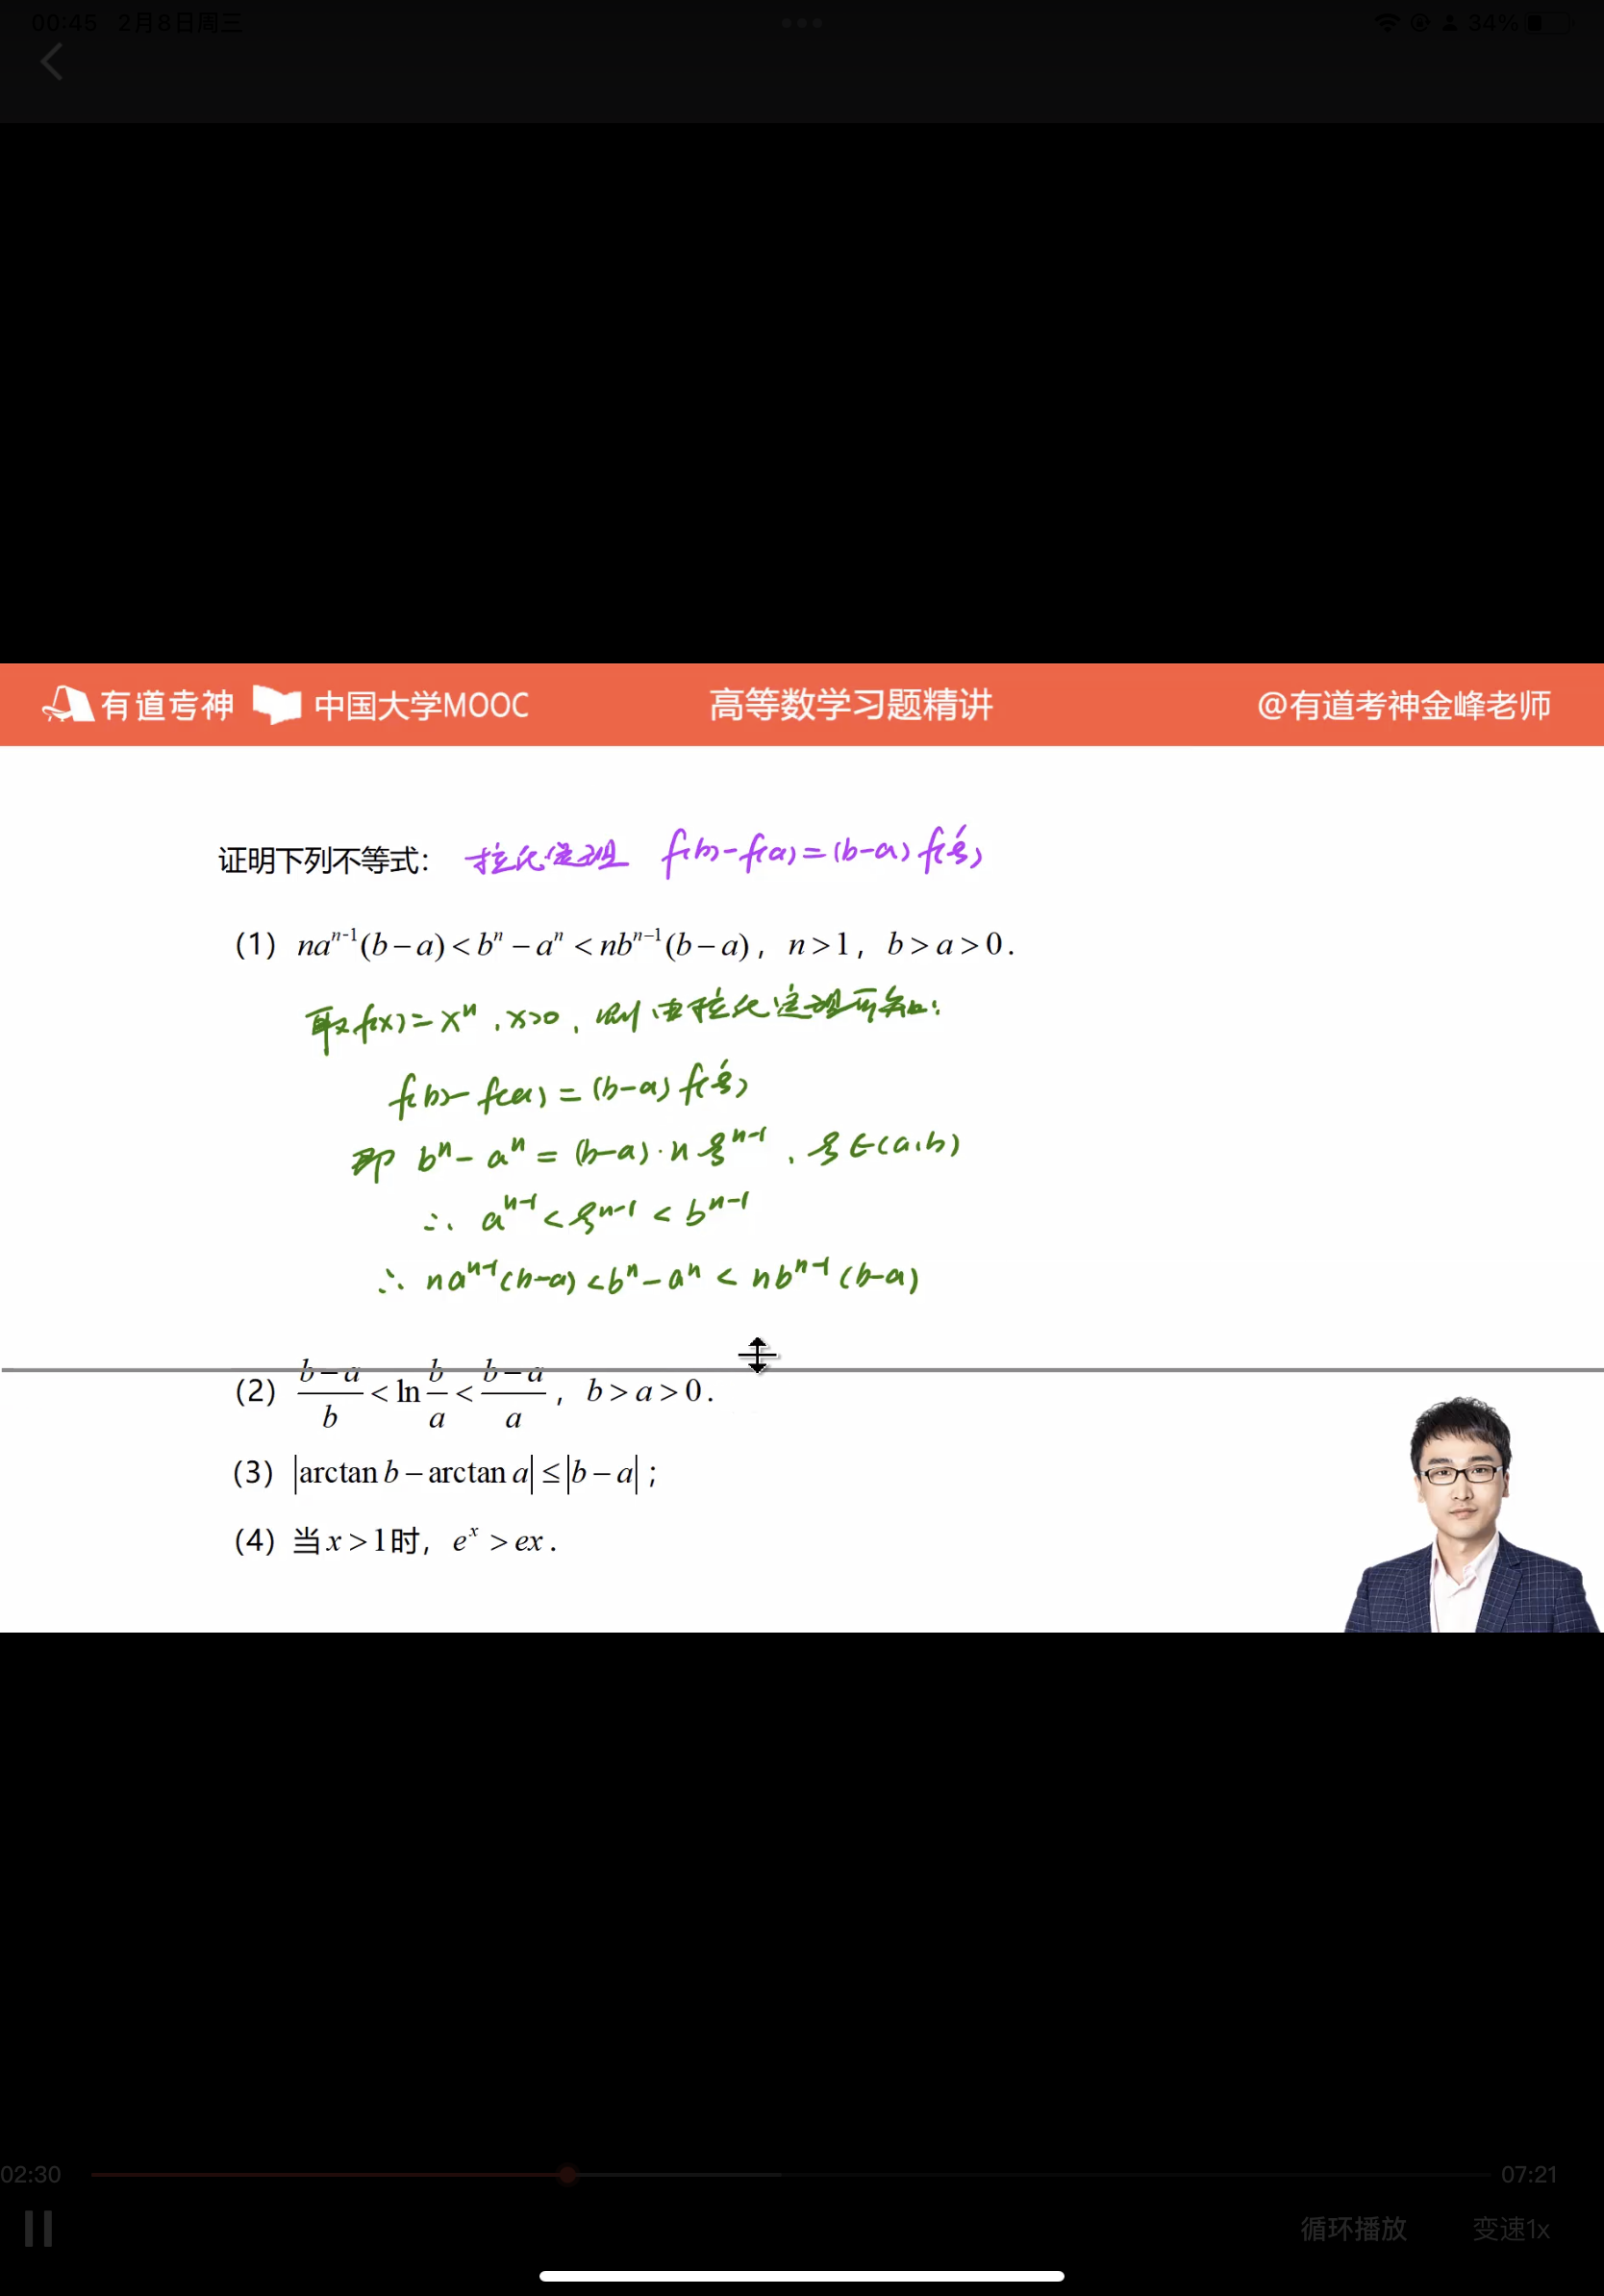 00:45 2月8日周三 34%
有道考神 中国大学MOOC 高等数学习题精讲 @有道考神金峰老师
证明下列不等式： 拉氏定理 f(b)-f(a)=(b-a)f'(ξ)
（1）naⁿ⁻¹(b－a)＜bⁿ－aⁿ＜nbⁿ⁻¹(b－a)，n＞1，b＞a＞0.
取f(x)=xⁿ, x>0, 则由拉氏定理可知:
f(b)-f(a)=(b-a)f'(ξ)
即 bⁿ-aⁿ=(b-a)·nξⁿ⁻¹, ξ∈(a,b)
∴ aⁿ⁻¹<ξⁿ⁻¹<bⁿ⁻¹
∴ naⁿ⁻¹(b-a)<bⁿ-aⁿ<nbⁿ⁻¹(b-a)
（2）(b－a)/b＜ln b/a＜(b－a)/a，b＞a＞0.
（3）|arctan b－arctan a|≤|b－a|；
（4）当x＞1时，eˣ＞ex.
02:30 07:21
循环播放 变速1x